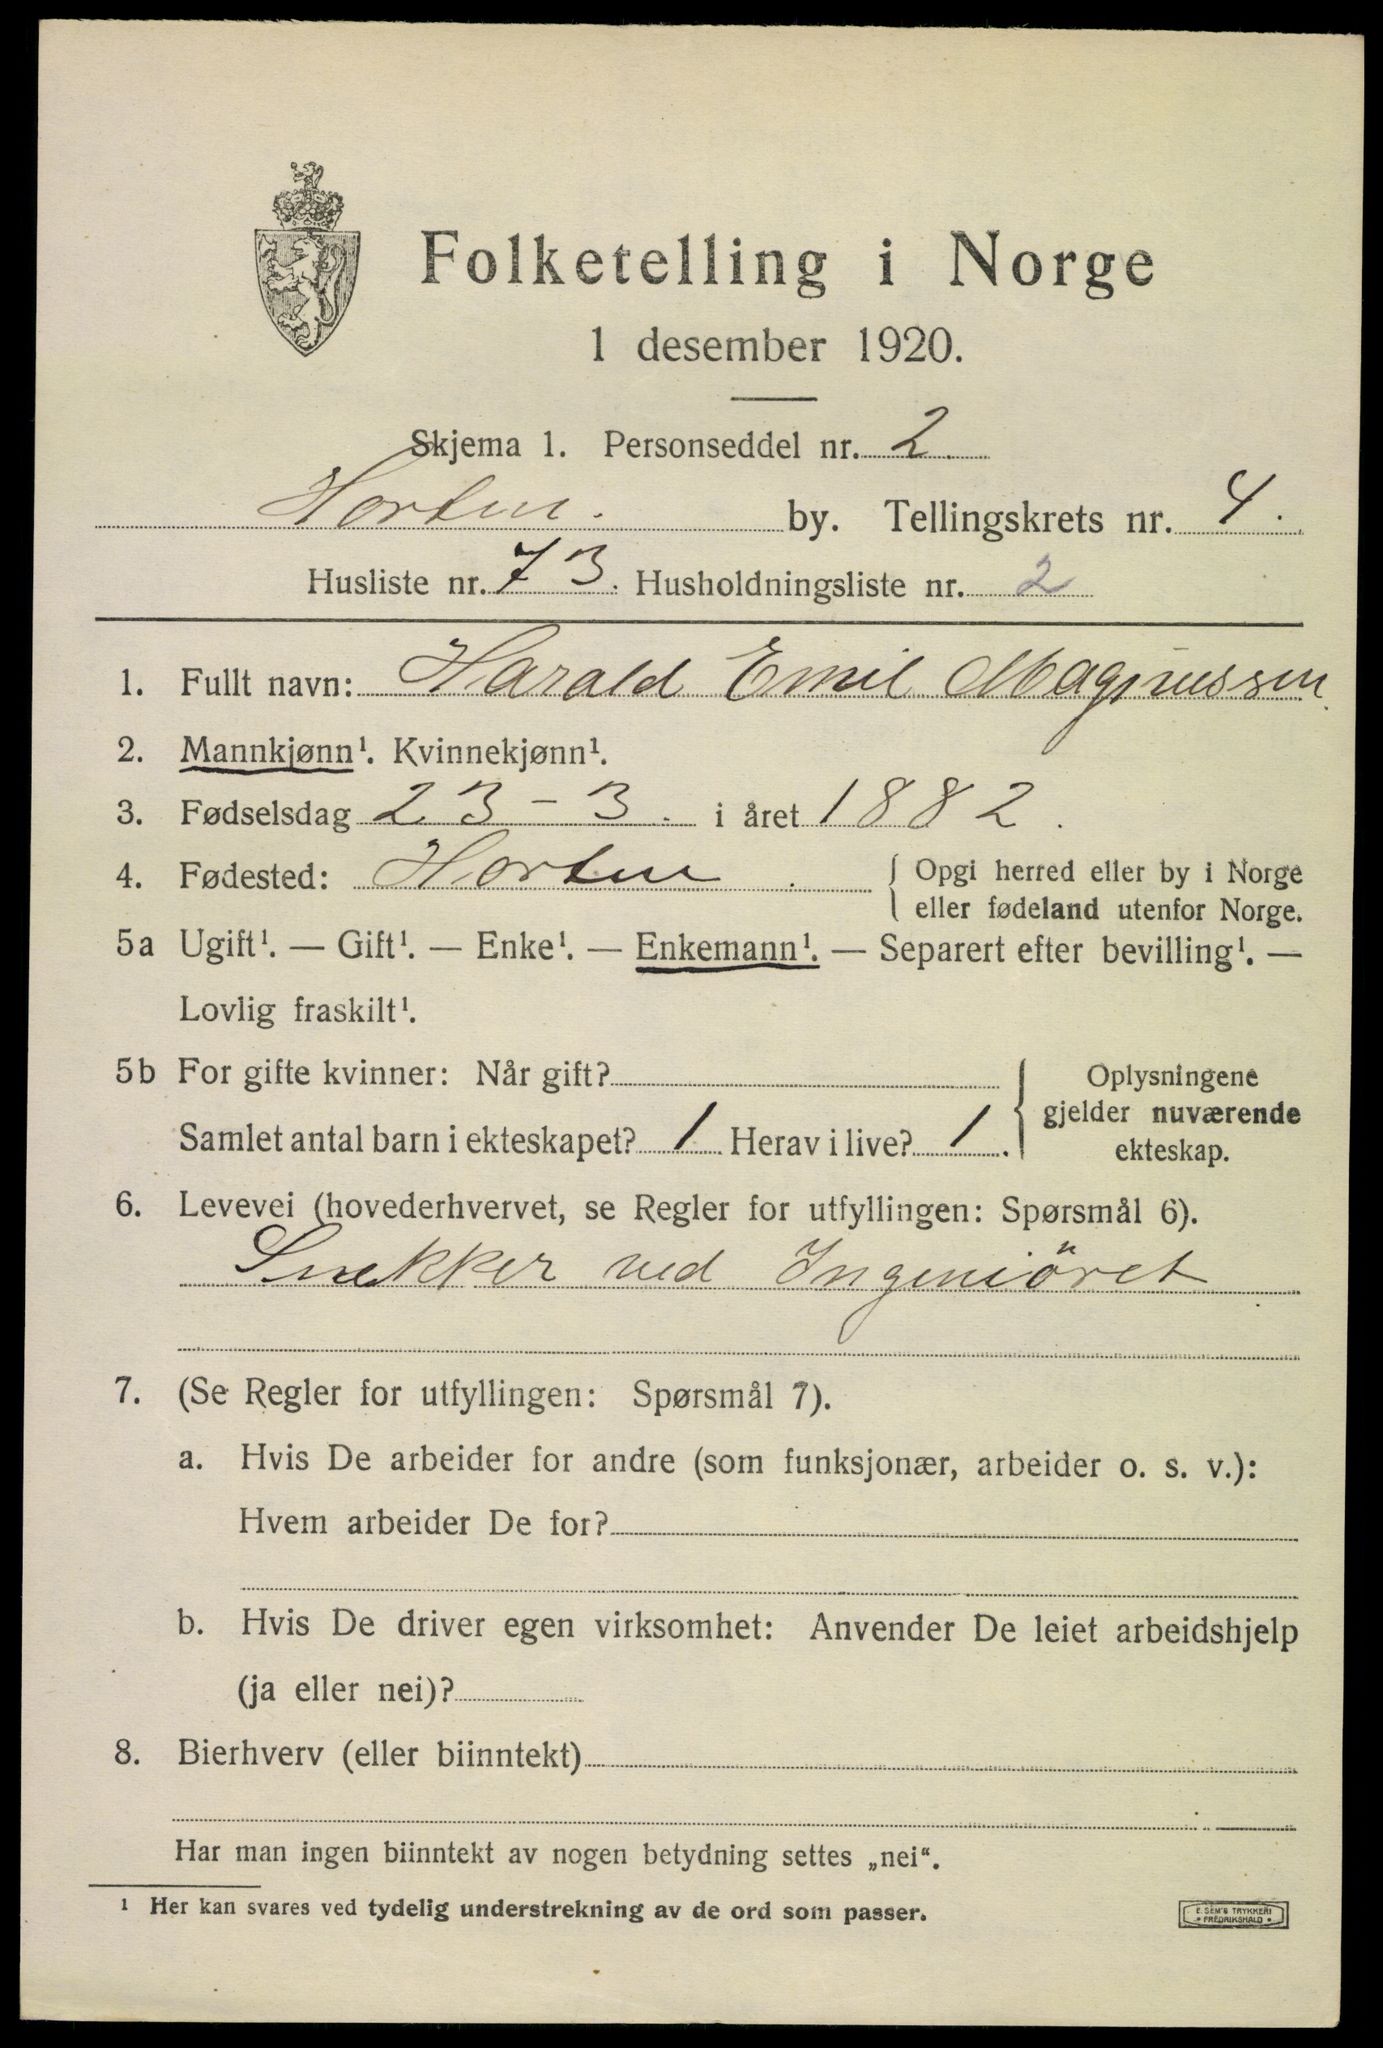 Folketelling i Norge
1 desember 1920.
Skjema 1. Personseddel nr. 2.
Horten. by. Tellingskrets nr. 4.
Husliste nr. 73. Husholdningsliste nr. 2
1. Fullt navn: Harald Emil Magnussen.
2. Mannkjønn¹. Kvinnekjønn¹.
3. Fødselsdag 23-3. i året 1882.
4. Fødested: Horten. { Opgi herred eller by i Norge
eller fødeland utenfor Norge.
5a Ugift¹. — Gift¹. — Enke¹. — Enkemann¹. — Separert efter bevilling¹. —
Lovlig fraskilt¹.
5b For gifte kvinner: Når gift? { Oplysningene
gjelder nuværende
Samlet antal barn i ekteskapet? 1 Herav i live? 1.
ekteskap.
6. Levevei (hovederhvervet, se Regler for utfyllingen: Spørsmål 6).
Snekker ved Ingeniöret
7. (Se Regler for utfyllingen: Spørsmål 7).
a. Hvis De arbeider for andre (som funksjonær, arbeider o. s. v.):
Hvem arbeider De for?
b. Hvis De driver egen virksomhet: Anvender De leiet arbeidshjelp
(ja eller nei)?
8. Bierhverv (eller biinntekt)
Har man ingen biinntekt av nogen betydning settes „nei“.
¹ Her kan svares ved tydelig understrekning av de ord som passer.
E. SEM'S TRYKKERI
• FREDRIKSHALD •